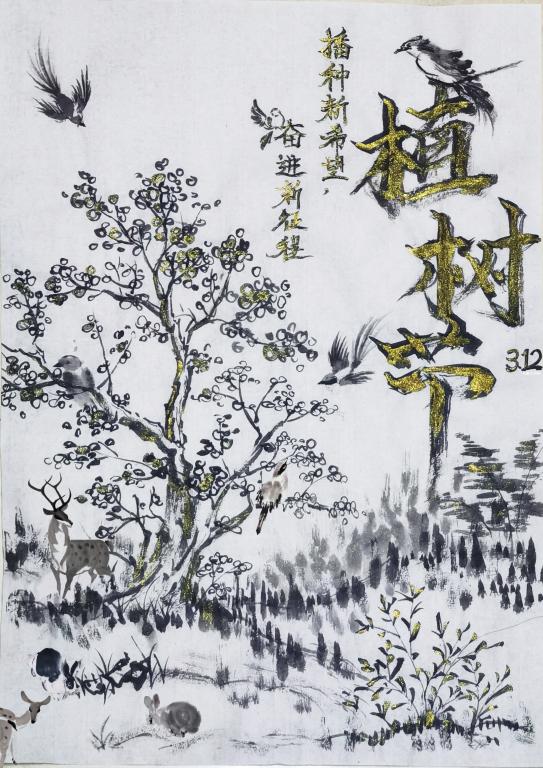 植树节
3.12
播种新希望,
奋进新征程